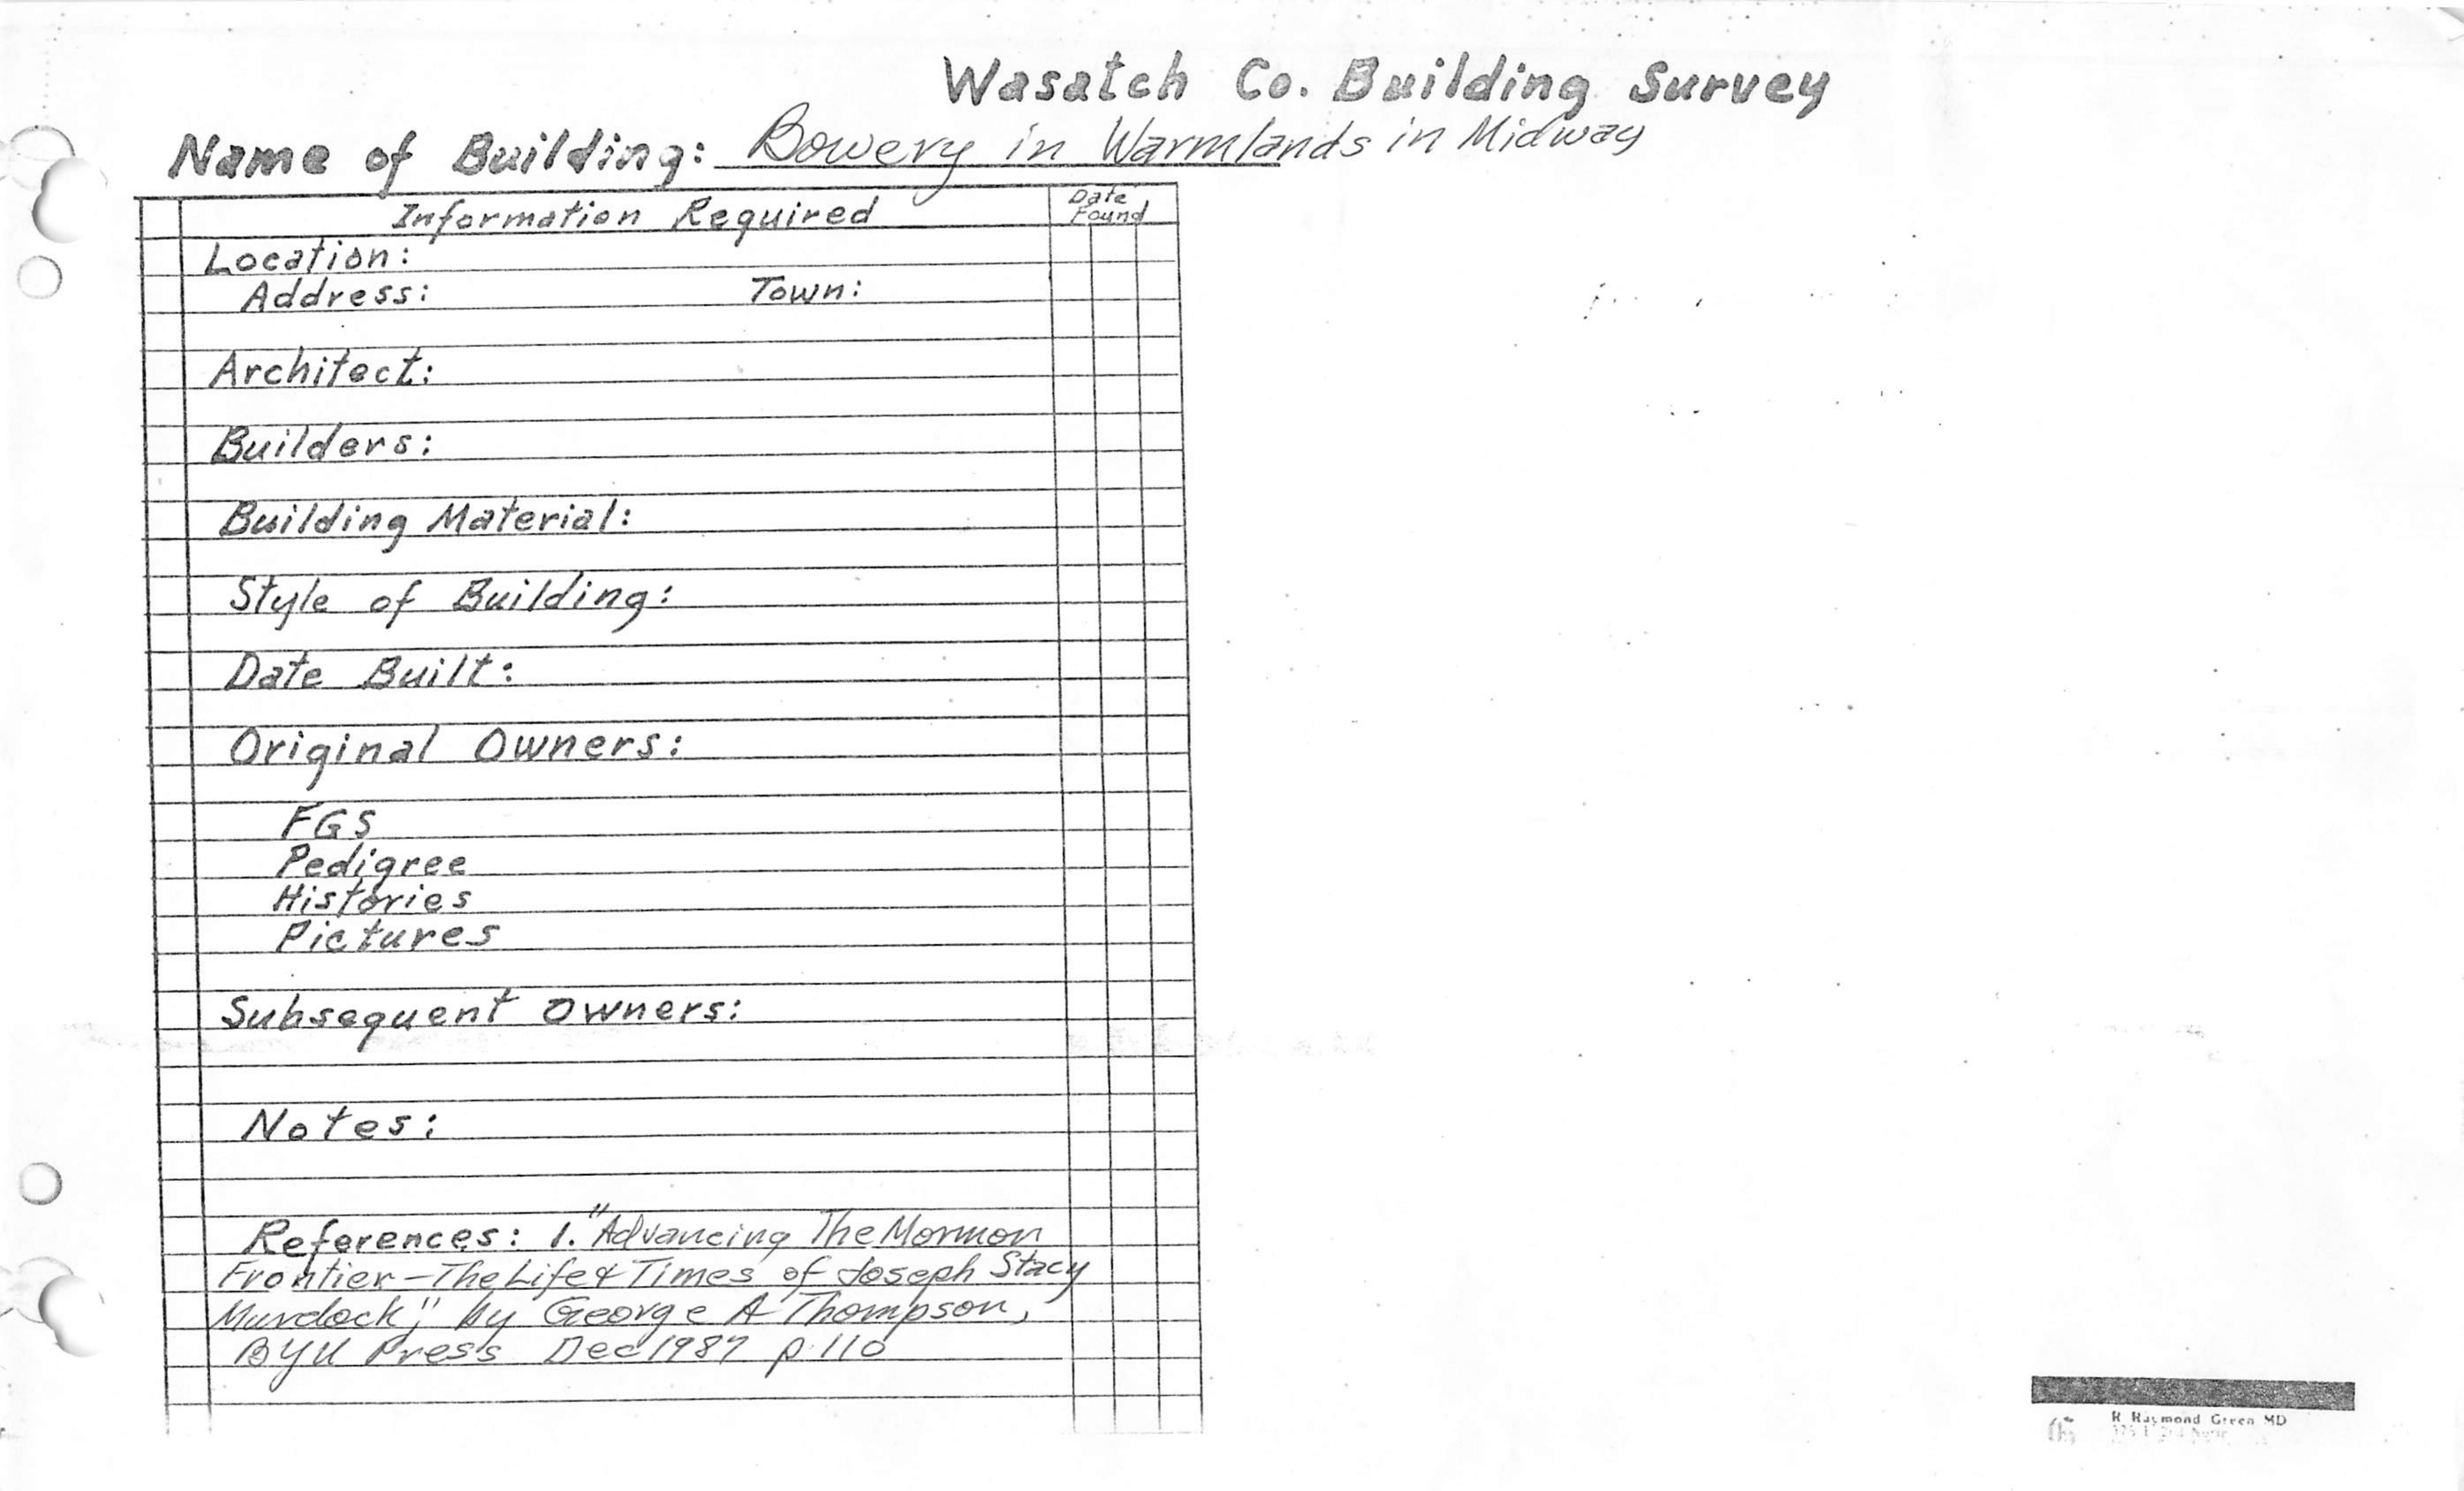 Wasatch Co. Building Survey
Name of Building: Bowery in Warmlands in Midway
Information Required
Date Found
Location:
Address: Town:
Architect:
Builders:
Building Material:
Style of Building:
Date Built:
Original Owners:
FGS
Pedigree
Histories
Pictures
Subsequent Owners:
Notes:
References: 1. "Advancing The Mormon
Frontier-The Life & Times of Joseph Stacy
Murdock," by George A Thompson,
BYU Press Dec 1987 p. 110
R Raymond Green MD